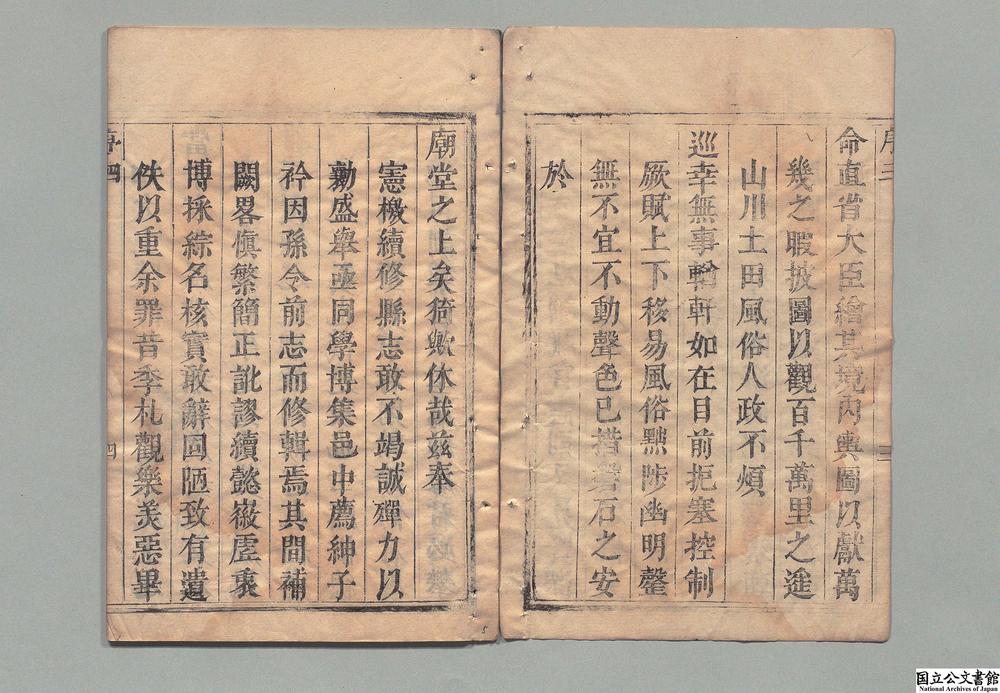 序三
三
命直省大臣繪其境內輿圖以獻萬
幾之暇披圖以觀百千萬里之遙
山川土田風俗人政不煩
巡幸無事輪軒如在目前扼塞控制
厥賦上下移易風俗黜陟幽明罄
無不宜不動聲色已措磐石之安
於
廟堂之上矣猗歟休哉茲奉
憲檄續修縣志敢不竭誠殫力以
勷盛舉亟同學博集邑中薦紳子
衿因孫令前志而修輯焉其間補
闕畧傎繁簡正訛謬續懿徽虛衷
博採綜名核實敢辭固陋致有遺
佚以重余罪昔季札觀樂美惡畢
序四
四
5
国立公文書館
National Archives of Japan